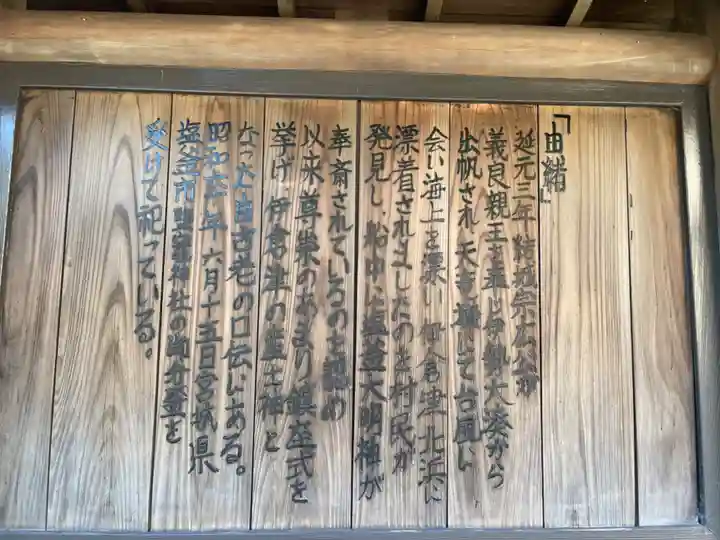 「由緒」
延元三年結城宗広公が
義良親王を奉じ伊勢大湊から
出帆され天竜灘にて台風に
会い海上を漂い伊倉津北浜に
漂着されましたのを村民が
発見し、船中に塩釜大明神が
奉斎されているのを認め
以来尊崇のあまり、鎮座式を
挙げ、伊倉津の産土神と
なったと由古老の口伝にある。
昭和 年六月十五日宮城県
塩釜市 神社の御分霊を
受けて祀っている。